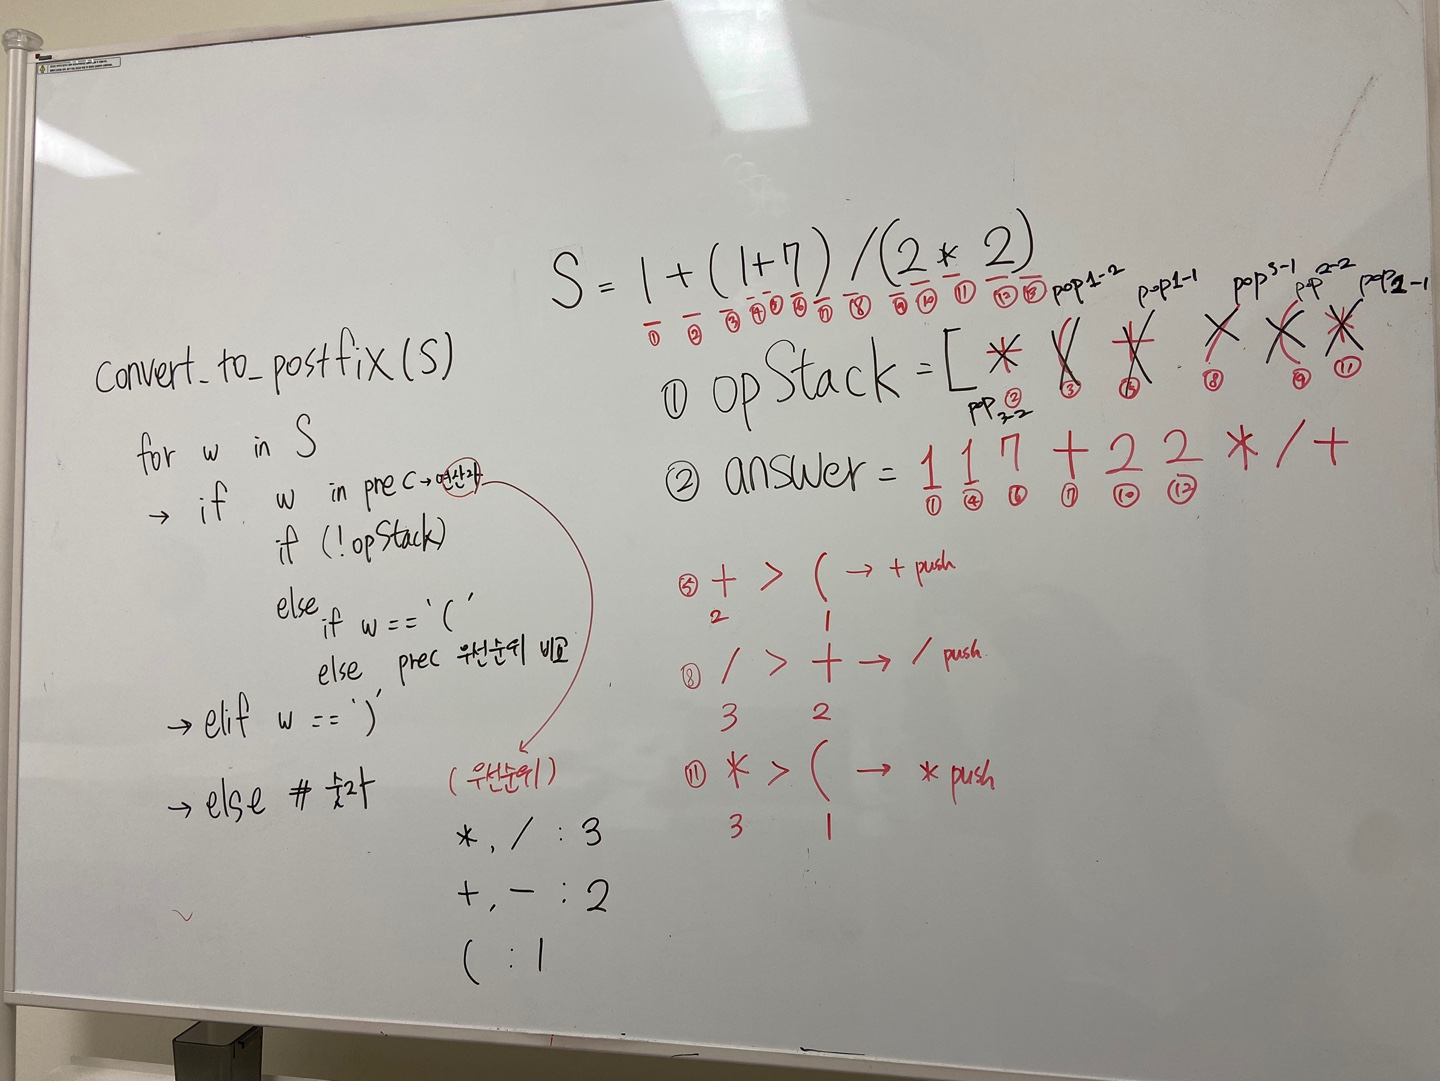 S = 1 + ( 1 + 7 ) / ( 2 * 2 )
① ② ③ ④ ⑤ ⑥ ⑦ ⑧ ⑨ ⑩ ⑪ ⑫ ⑬
pop1-2 pop1-1 pop3-1 pop2-2 pop2-1
① opStack = [ + ( + / ( *
② ③ ⑤ ⑧ ⑨ ⑪
pop3-2
② answer = 1 1 7 + 2 2 * / +
① ④ ⑥ ⑦ ⑩ ⑫
convert_to_postfix(S)
for w in S
→ if w in prec → 연산자
if (!opStack)
else
if w == '('
else prec 우선순위 비교
→ elif w == ')'
→ else # 숫자
(우선순위)
*, / : 3
+, - : 2
( : 1
⑤ + > ( → + push
2 1
⑧ / > + → / push
3 2
⑪ * > ( → * push
3 1